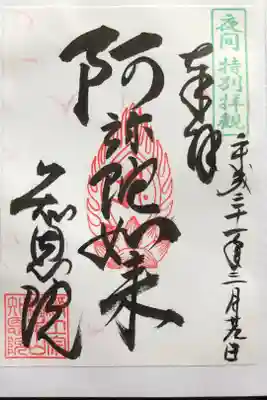 夜間 特別拝観
奉拝
平成三十一年三月 日
阿弥陀如来
知恩院